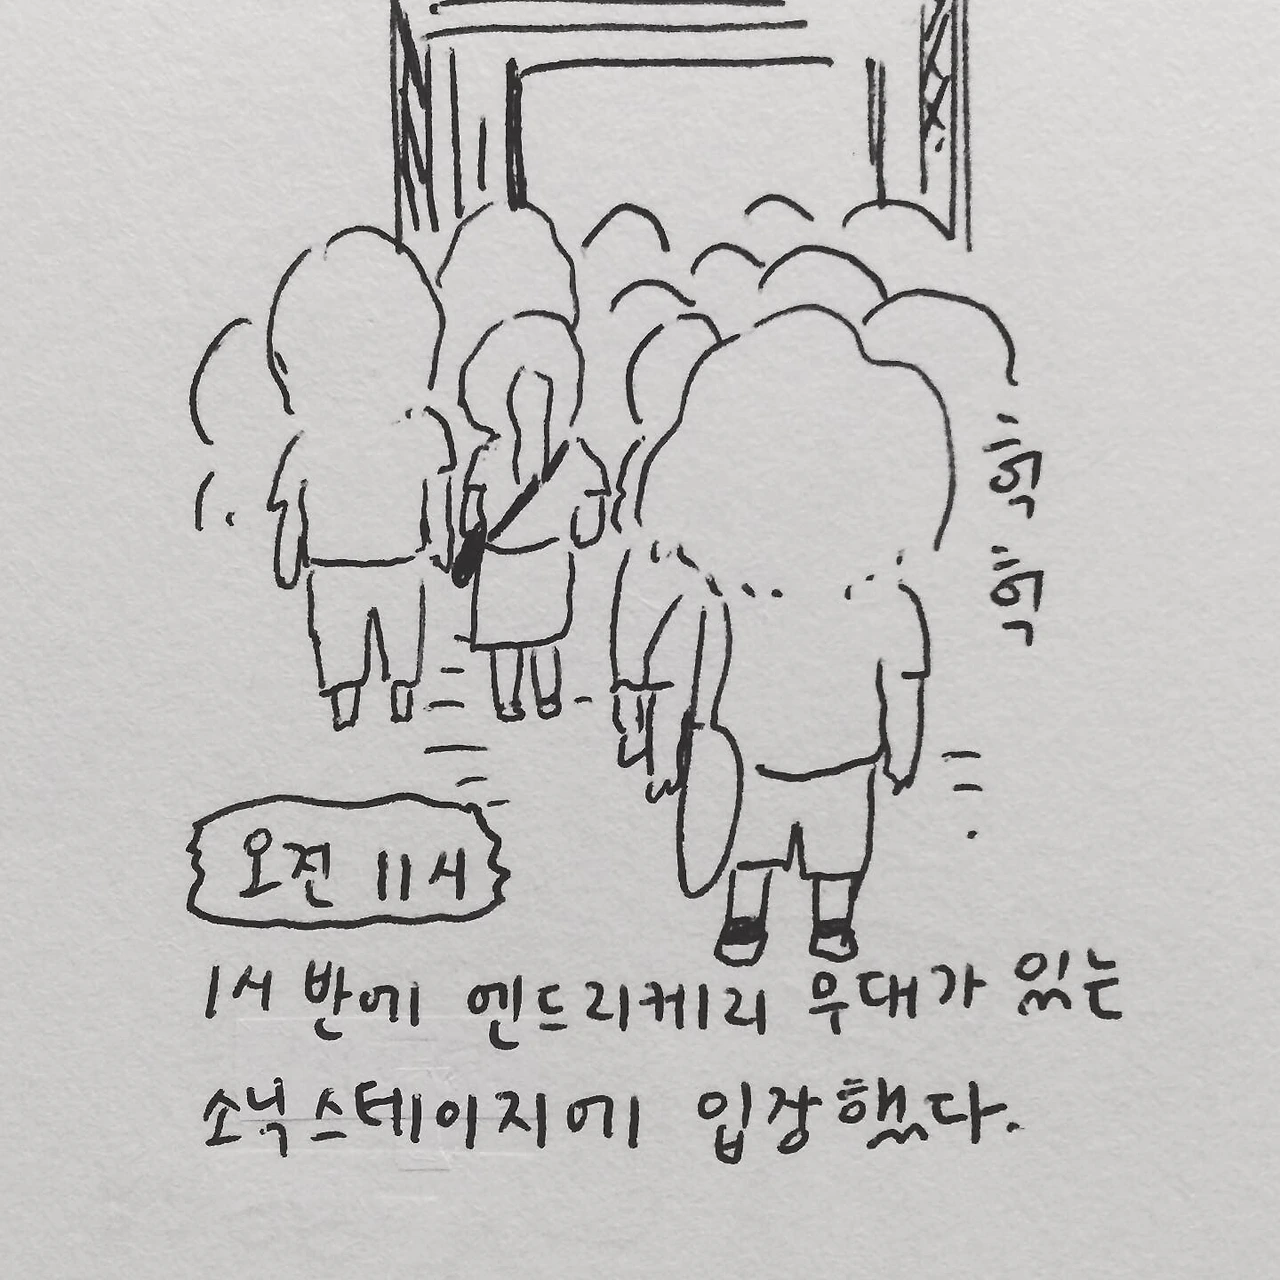 오전 11시
1시 반에 엔드리케리 무대가 있는
소닉스테이지에 입장했다.